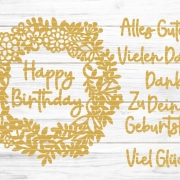 Happy
Birthday
Alles Gut
Vielen Da
Dank
Zu Dein
Geburtst
Viel Glü